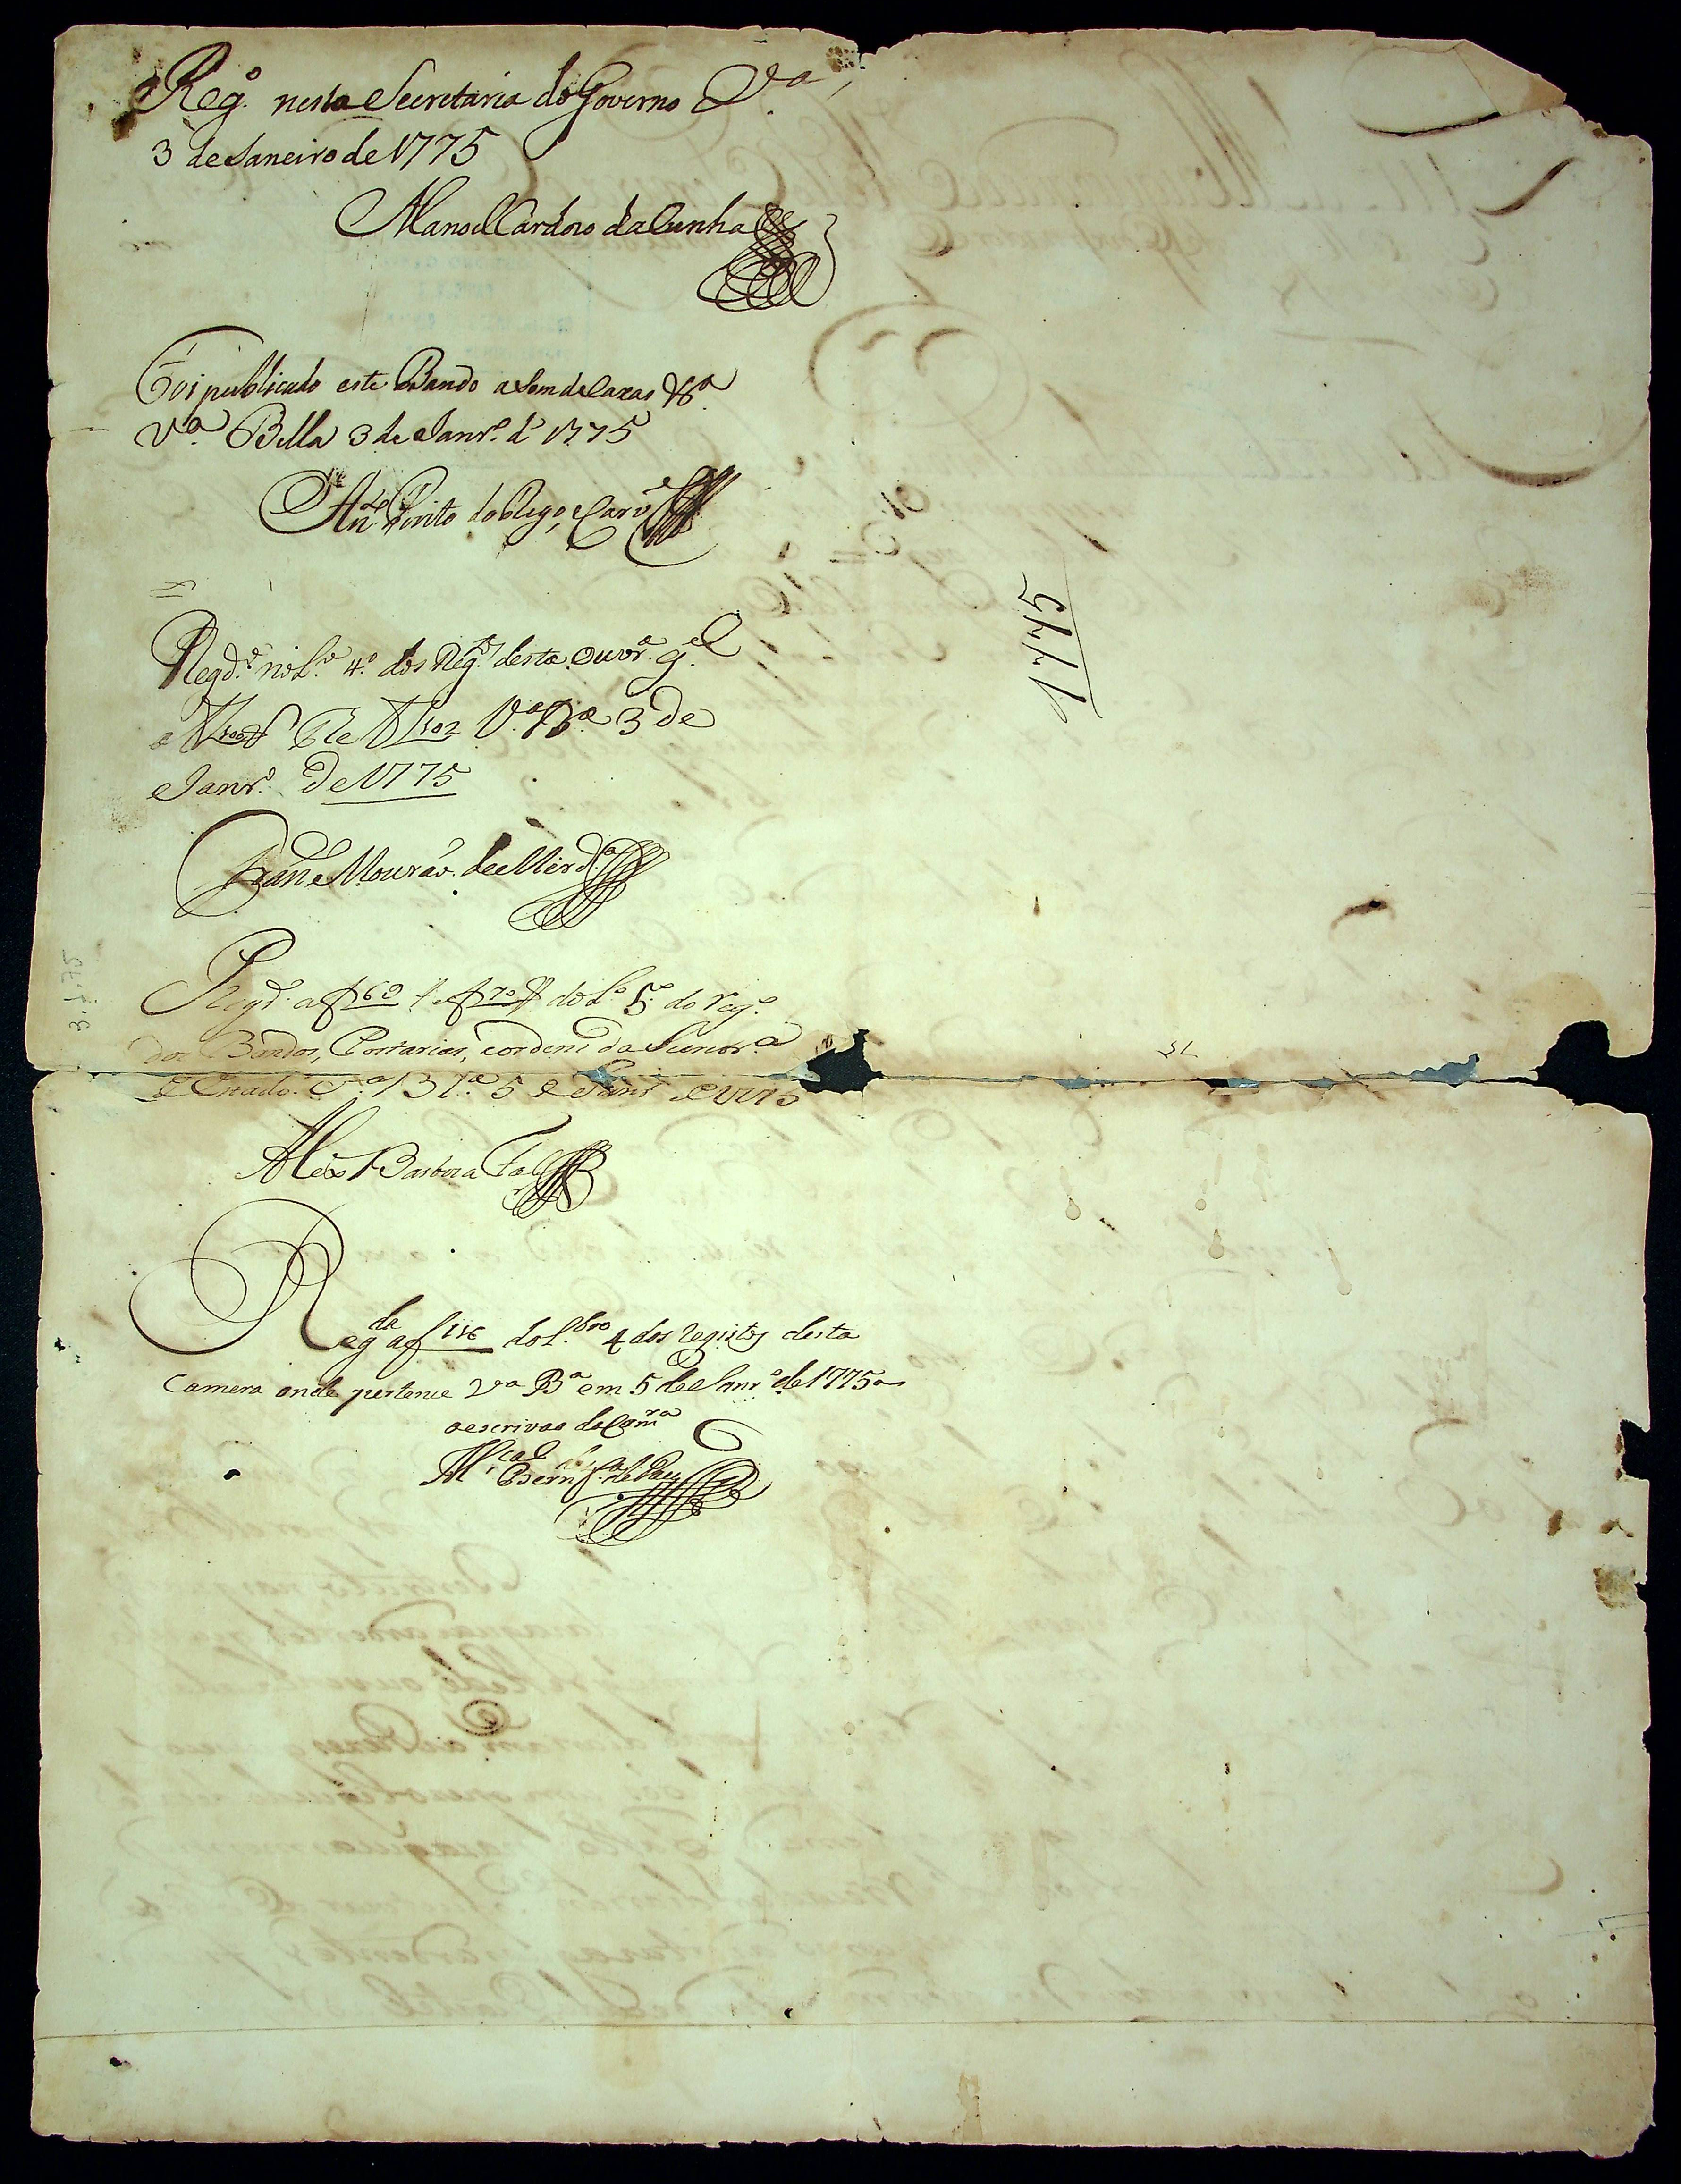 Reg.º nesta Secretaria do Governo V.ª
3 de Janeiro de 1775
Manoel Cardozo da Cunha
Foi publicado este Bando a som de Caxas &.ª
V.ª Bella 3 de Janr.º d 1775
An.to Pinto do Rego, e Carv.º
Regd.º no L.º 4.º dos Reg.tos desta Ouvr.ª g.el
V.ª B.ª 3 de
Janr.º de 1775
Mourão
1775
Regd.º a f 69 e f 70 do L.º 5.º do reg.º
dos Bandos, Portarias, e ordens da
V.ª B.ª 5 de Janr.º
Alex Barboza
Regda a f 116 do L.bro 4 dos Registos desta
Camera onde pertence V.ª B.ª em 5 de Janr.º de 1775 a
o escrivao da Camra
3.1.75